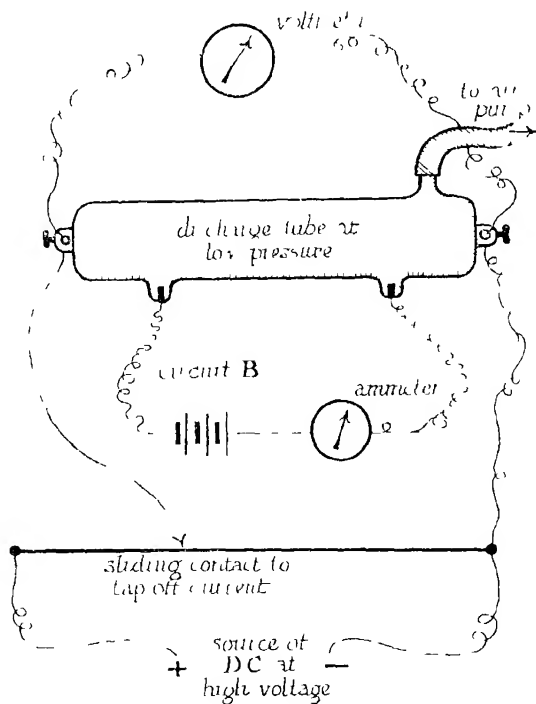 discharge tube at
low pressure
circuit B
ammeter
sliding contact to
tap off current
source of
+ DC at −
high voltage